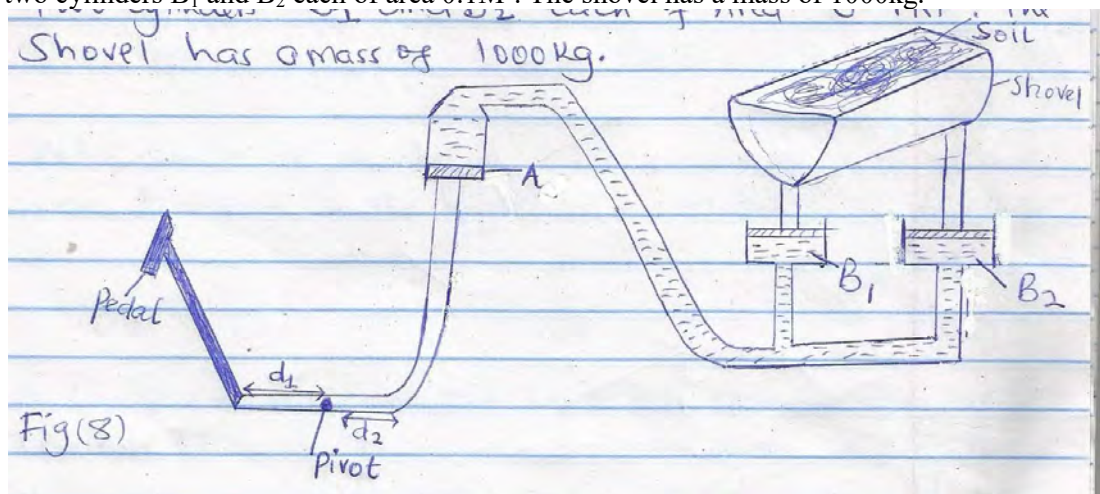 two cylinders B₁ and B₂ each of area 0.1M². The shovel has a mass of 1000kg.
Shovel has a mass of 1000kg.
Soil
Shovel
A
B₁
B₂
Pedal
d₁
d₂
Fig(8)
Pivot